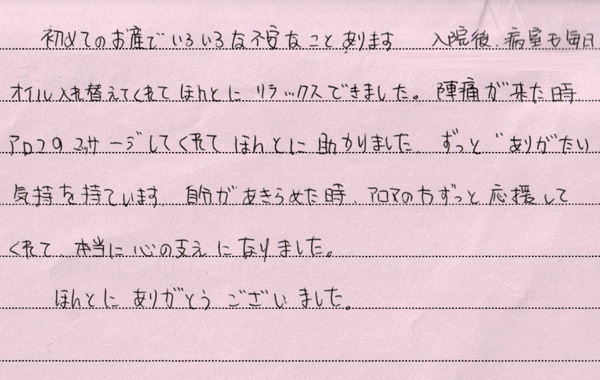 初めてのお産でいろいろな不安なことあります 入院後、病室も毎日
オイル入れ替えてくれてほんとにリラックスできました。陣痛が来た時
アロマのマッサージしてくれてほんとに助かりました ずっと"ありがたい
気持を持ています 自分があきらめた時、アロマの方ずっと応援して
くれて、本当に心の支えになりました。
ほんとにありがとうございました。